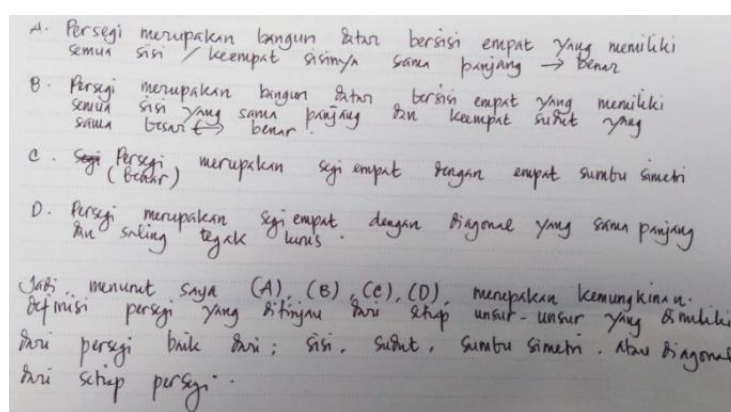 A. Persegi merupakan bangun datar bersisi empat yang memiliki
semua sisi / keempat sisinya sama panjang → benar
B. Persegi merupakan bangun datar bersisi empat yang memiliki
semua sisi yang sama panjang dan keempat sudut yang
sama besar → benar.
C. Persegi merupakan segi empat dengan empat sumbu simetri
(benar)
D. Persegi merupakan segi empat dengan diagonal yang sama panjang
dan saling tegak lurus.
Jadi, menurut saya (A), (B), (C), (D), merupakan kemungkinan.
definisi persegi yang ditinjau dari setiap unsur-unsur yang dimiliki
dari persegi baik dari; sisi, sudut, sumbu simetri. atau diagonal
dari setiap persegi.